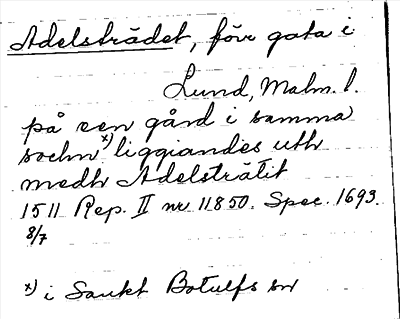 Adelsträdet, förr gata i
Lund, Malm. l.
på een gård i samma
sochn x) liggiandes uth
medh Adelsträtit
1511 Rep. II nr 11850. Spec. 1693.
8/7
x) i Sankt Botulfs sn